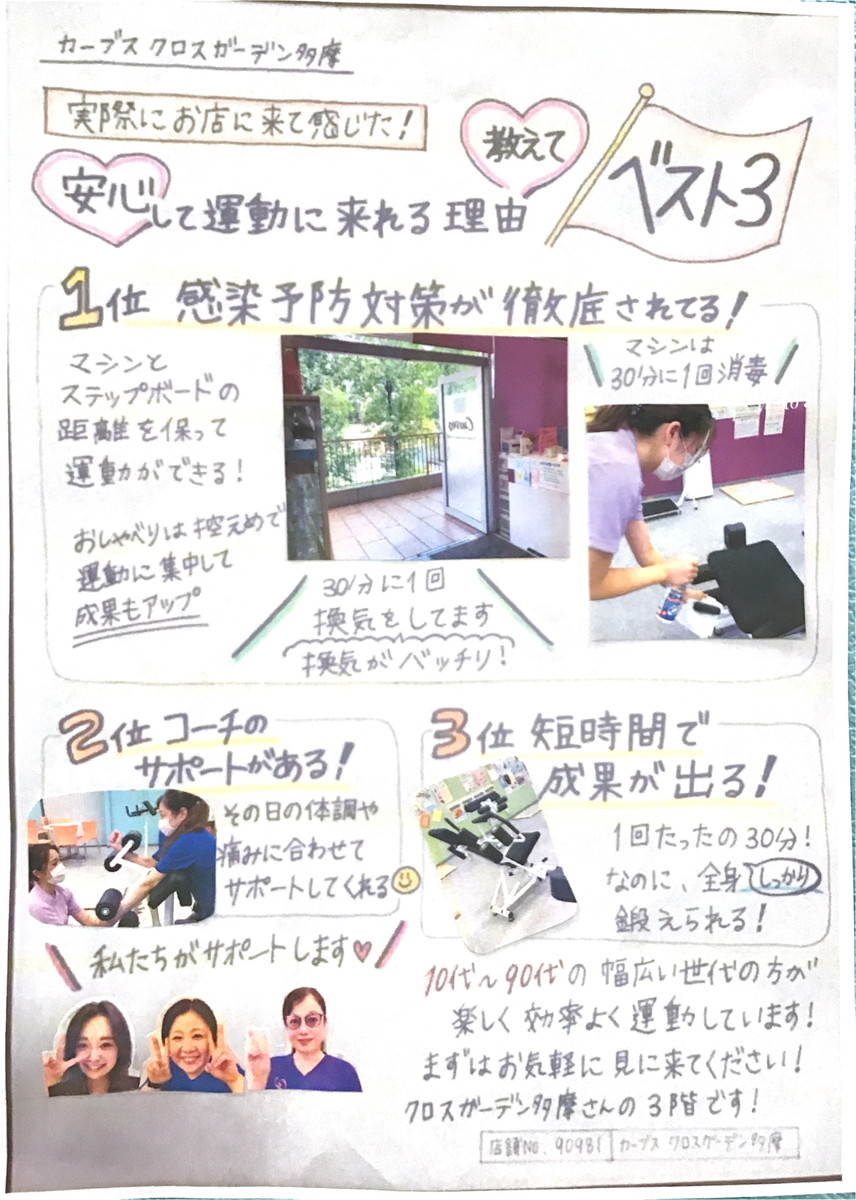 カーブス クロスガーデン多摩
実際にお店に来て感じた!
教えて
ベスト3
安心して運動に来れる理由
1位 感染予防対策が徹底されてる!
マシンと
ステップボードの
距離を保って
運動ができる!
おしゃべりは控えめで
運動に集中して
成果もアップ
Curves
30分に1回
換気をしてます
換気がバッチリ!
マシンは
30分に1回消毒
2位 コーチの
サポートがある!
その日の体調や
痛みに合わせて
サポートしてくれる
私たちがサポートします
3位 短時間で
成果が出る!
1回たったの30分!
なのに、全身しっかり
鍛えられる!
10代~90代の幅広い世代の方が
楽しく効率よく運動しています!
まずはお気軽に見に来てください!
クロスガーデン多摩さんの3階です!
店舗No. 90981 カーブス クロスガーデン多摩